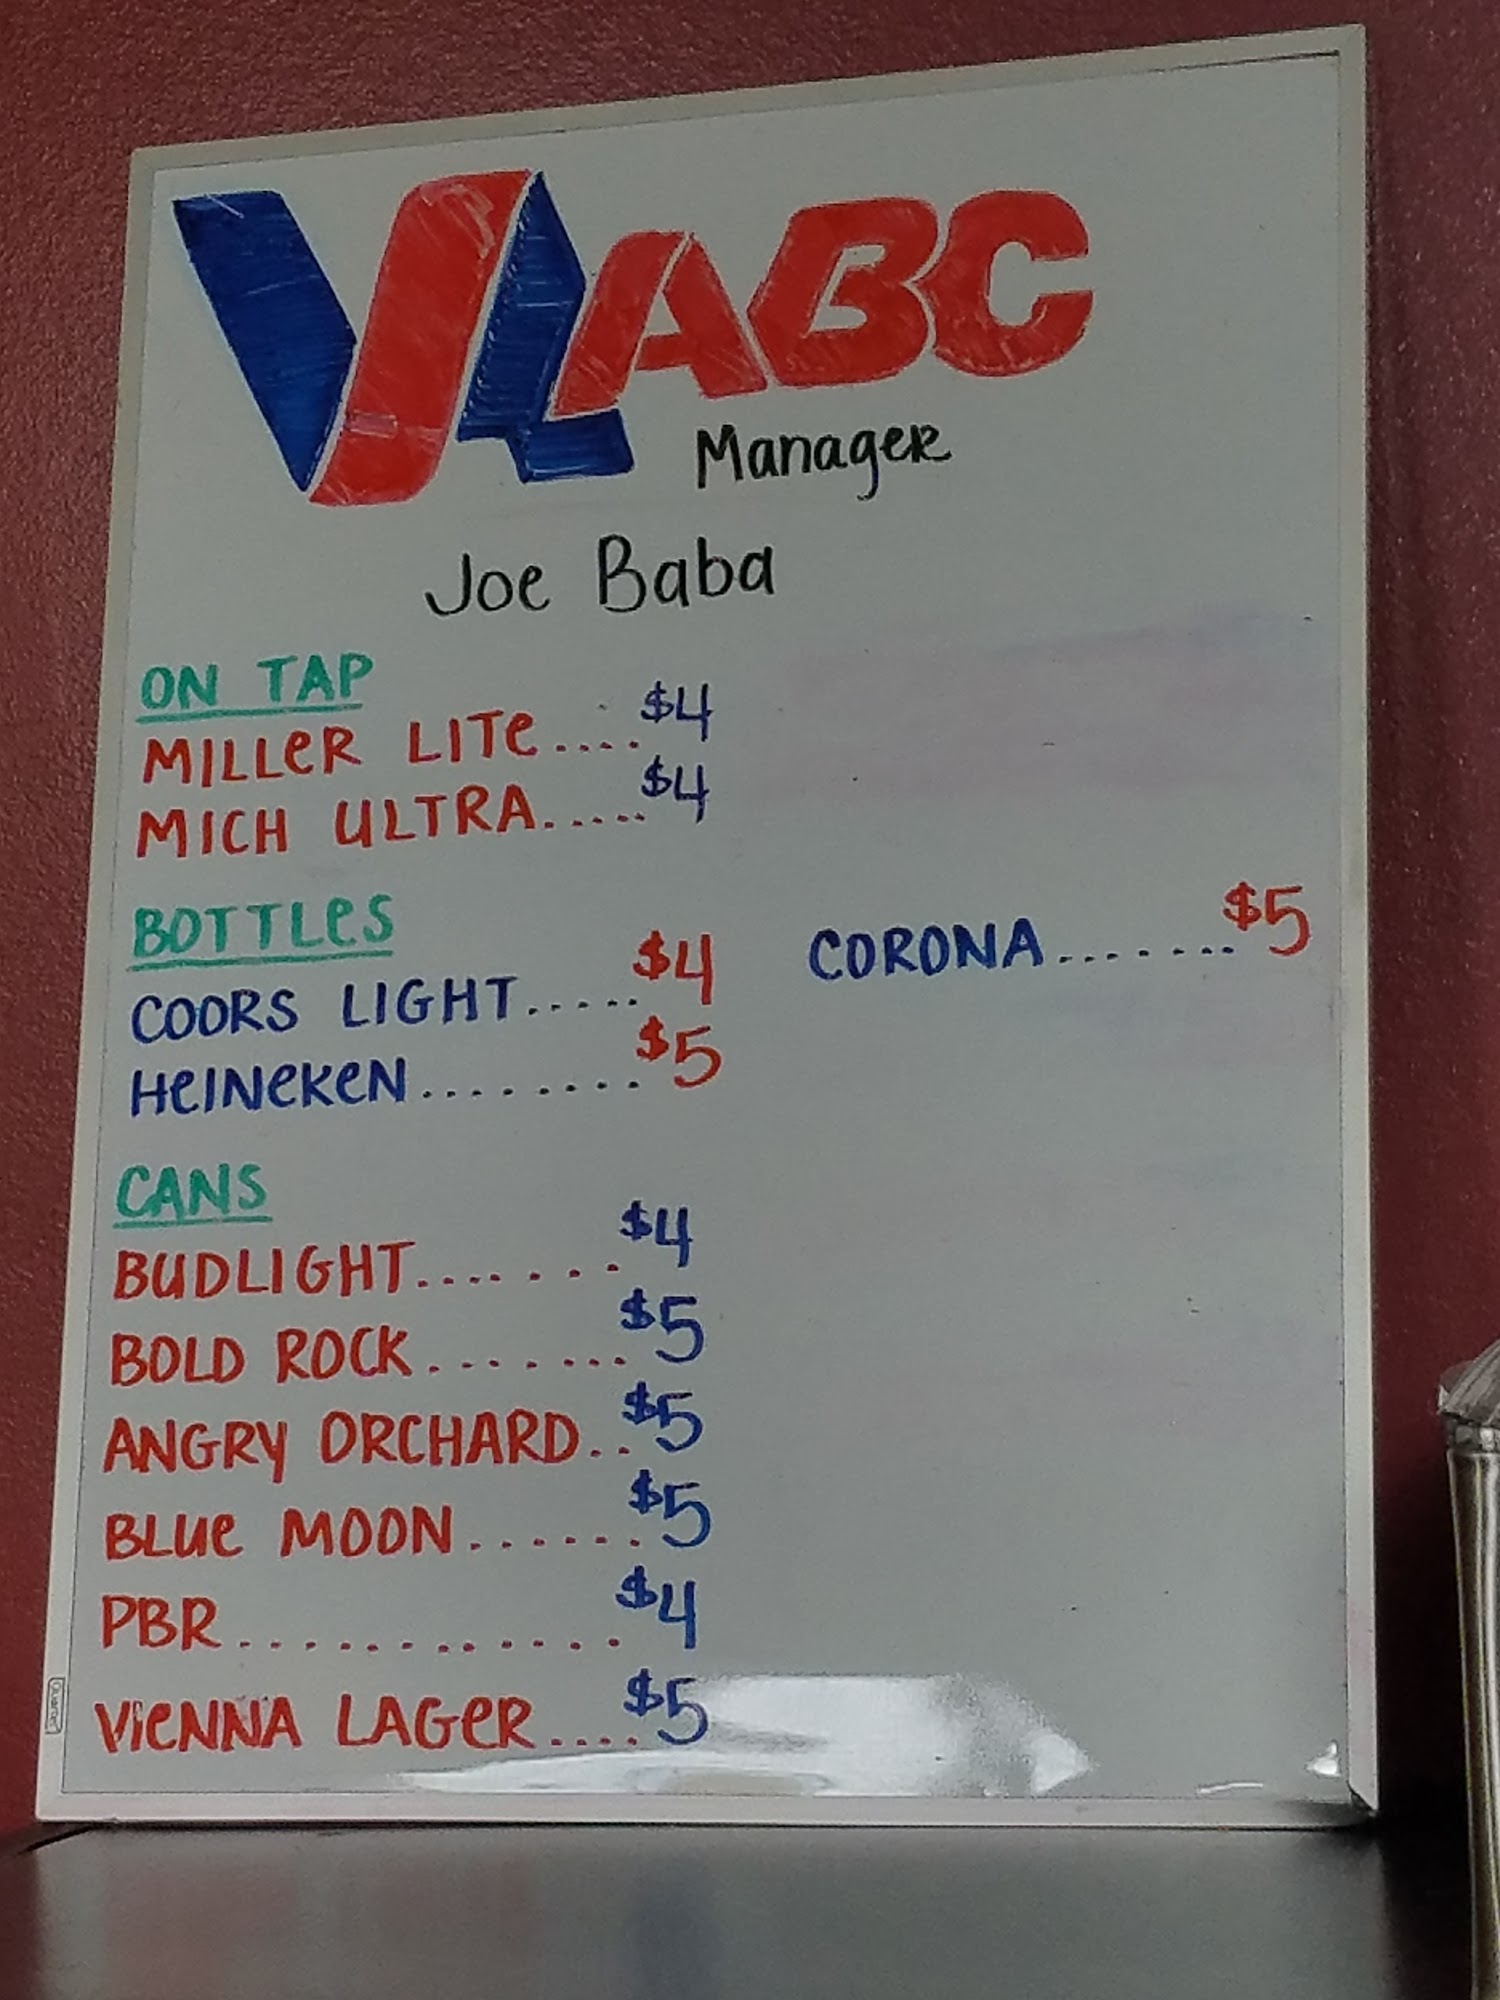 VA ABC
Manager
Joe Baba
ON TAP
MILLER LITE.... $4
MICH ULTRA..... $4
BOTTLES
COORS LIGHT..... $4
CORONA....... $5
HEINEKEN........ $5
CANS
BUDLIGHT....... $4
BOLD ROCK....... $5
ANGRY ORCHARD.. $5
BLUE MOON...... $5
PBR............ $4
VIENNA LAGER.... $5
Quartet